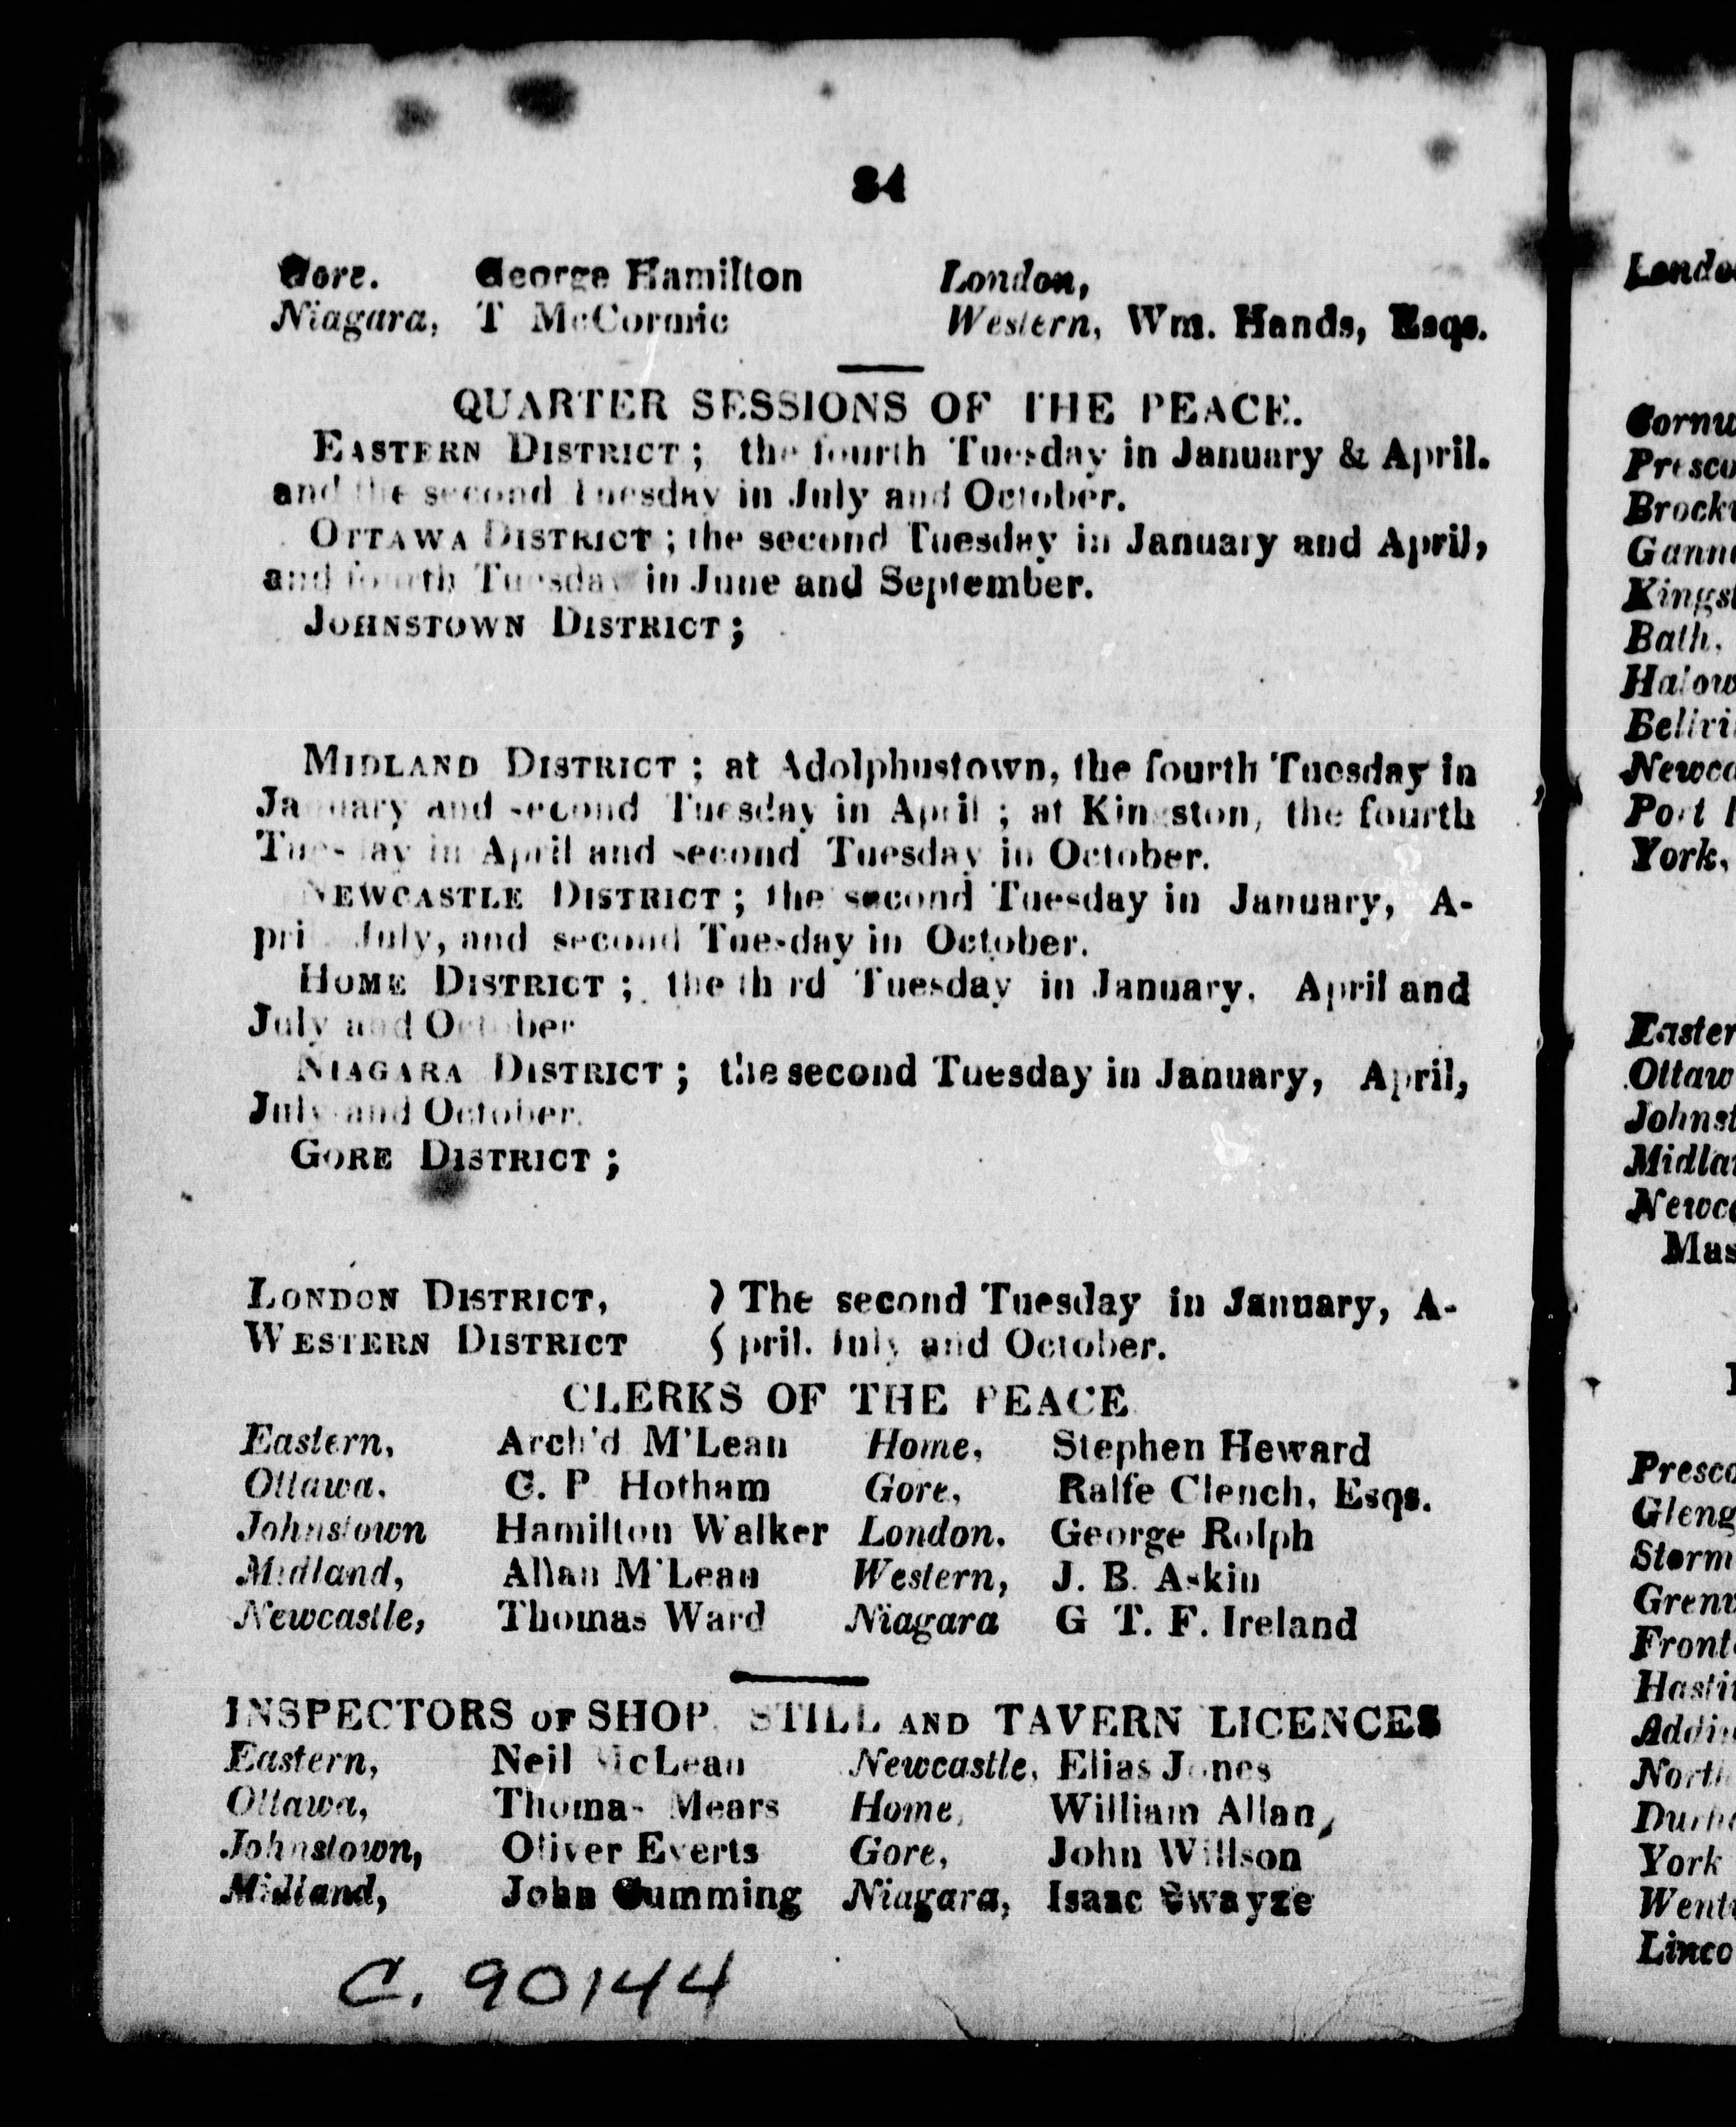 34
Gore. George Hamilton London,
Niagara, T McCormic Western, Wm. Hands, Esqs.
QUARTER SESSIONS OF THE PEACE.
EASTERN DISTRICT; the fourth Tuesday in January & April.
and the second Tuesday in July and October.
OTTAWA DISTRICT; the second Tuesday in January and April,
and fourth Tuesday in June and September.
JOHNSTOWN DISTRICT;
MIDLAND DISTRICT; at Adolphustown, the fourth Tuesday in
January and second Tuesday in April; at Kingston, the fourth
Tuesday in April and second Tuesday in October.
NEWCASTLE DISTRICT; the second Tuesday in January, A-
pri July, and second Tuesday in October.
HOME DISTRICT; the third Tuesday in January. April and
July and October
NIAGARA DISTRICT; the second Tuesday in January, April,
July and October.
GORE DISTRICT;
LONDON DISTRICT, } The second Tuesday in January, A-
WESTERN DISTRICT { pril. July and October.
CLERKS OF THE PEACE
Eastern, Arch'd M'Lean Home, Stephen Heward
Ottawa. G. P Hotham Gore, Ralfe Clench, Esqs.
Johnstown Hamilton Walker London. George Rolph
Midland, Allan M'Lean Western, J. B. Askin
Newcastle, Thomas Ward Niagara G T. F. Ireland
INSPECTORS OF SHOP STILL AND TAVERN LICENCES
Eastern, Neil McLean Newcastle, Elias Jones
Ottawa, Thomas Mears Home, William Allan,
Johnstown, Oliver Everts Gore, John Willson
Midland, John Cumming Niagara, Isaac Swayze
C. 90144
Londo
Cornw
Presco
Brock
Gann
Kingst
Bath,
Halow
Bellvi
Newca
Port
York,
Easter
Ottaw
Johnst
Midla
Newc
Mas
Presco
Gleng
Storm
Gren
Front
Hasti
Addi
North
Durh
York
Went
Linco